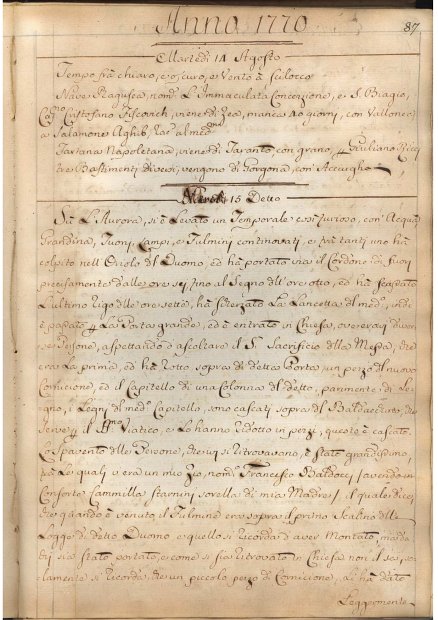 Anno 1770
87
Martedì 14 Agosto
Tempo frà chiaro, e oscuro, e Vento à scilocco
Nave Ragusea, nom.ta L'Immaculata Concezzione, e S. Biagio,
Cap.no Cristofano viene di Zea, manca 40 giorni, con Vallonea
a Salamone Aghib, Rac. al med.mo
Tartana Napoletana, viene di Taranto con grano, Giuliano Ricci
tre Bastimenti Diversi, vengono di Gorgona con Acciughe
15 Detto
Sù L'Aurora, si è Levato un Temporale così furioso, con Acqua
Grandina, Tuoni Lampi, e Fulmini continovati, e frà tanti uno hà
colpito nell'Oriolo del Duomo, ed hà portato via il Cordone di fuori
precisamente dalle ore sei fino al Segno dell'ore otto, ed hà
L'ultimo rigo delle ore sette, hà La Lancetta del med.mo, indi
è passato La Porta grande, ed è entrato in Chiesa, ove eravi diver-
se Persone, aspettando d'ascoltare il S. Sacrifizio della Messa, che
era La prima, ed hà rotto sopra di detta Porta, un pezzo del nuovo
Cornicione, ed il Capitello di una Colonna del detto, parimente di Le-
gno, i Legni del med.mo Capitello, sono cascati sopra del Baldacchino, che
serve il SS.mo Viatico, e Lo hanno ridotto in pezzi, questo è cascato
Lo Spavento delle Persone, che vi si ritrovavano, è stato grandissimo,
trà Le quali v'era un mio Zio, nom.to Francesco Baldocci (avendo in
Consorte Cammilla Starnini sorella di mia Madre) il quale dice,
che quando è venuto il Fulmine era sopra il primo Scalino delle
Logge di detto Duomo e quello si ricorda d'aver Montato, mà do-
ve sia stato portato, e come si sia ritrovato in Chiesa non il sà, so-
lamente si ricorda che un piccolo pezzo di Cornicione, L'hà dato
Leggermente